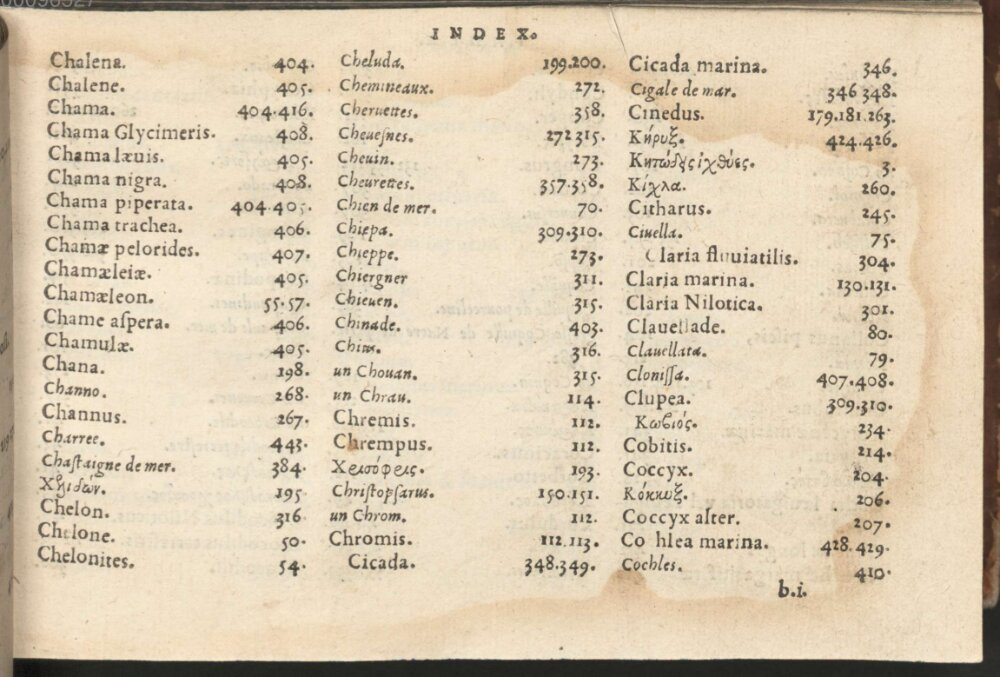 INDEX.
Chalena. 404.
Chalene. 405.
Chama. 404.416.
Chama Glycimeris. 408.
Chama læuis. 405.
Chama nigra. 408.
Chama piperata. 404.405.
Chama trachea. 406.
Chamæ pelorides. 407.
Chamæleiæ. 405.
Chamæleon. 55.57.
Chame aſpera. 406.
Chamulæ. 405.
Chana. 198.
Channo. 268.
Channus. 267.
Charree. 443.
Chaſtaigne de mer. 384.
Χελιδών. 195
Chelon. 316
Chelone. 50.
Chelonites. 54.
Cheluda. 199.200.
Chemineaux. 272.
Cheruettes. 358.
Cheueſnes. 272 315.
Cheuin. 273.
Cheurettes. 357.358.
Chien de mer. 70.
Chiepa. 309.310.
Chieppe. 273.
Chiergner 311.
Chieuen. 315.
Chinade. 403.
316.
un Chouan. 315.
un Chrau. 114.
Chremis. 112.
Chrempus. 112.
193.
Chriſtopſarus. 150.151.
un Chrom. 112.
Chromis. 112.113.
Cicada. 348.349.
Cicada marina. 346.
Cigale de mar. 346 348.
Cinedus. 179.181.263.
Κήρυξ. 424.426.
Κητώδης ἰχθύες. 3.
Κίχλα. 260.
Citharus. 245.
Ciuella. 75.
Claria fluuiatilis. 304.
Claria marina. 130.131.
Claria Nilotica. 301.
Clauellade. 80.
Clauellata. 79.
Cloniſſa. 407.408.
Clupea. 309.310.
Κωβιός. 234.
Cobitis. 214.
Coccyx. 204.
Κόκκυξ. 206.
Coccyx alter. 207.
Co hlea marina. 428.429.
Cochles. 410.
b.i.